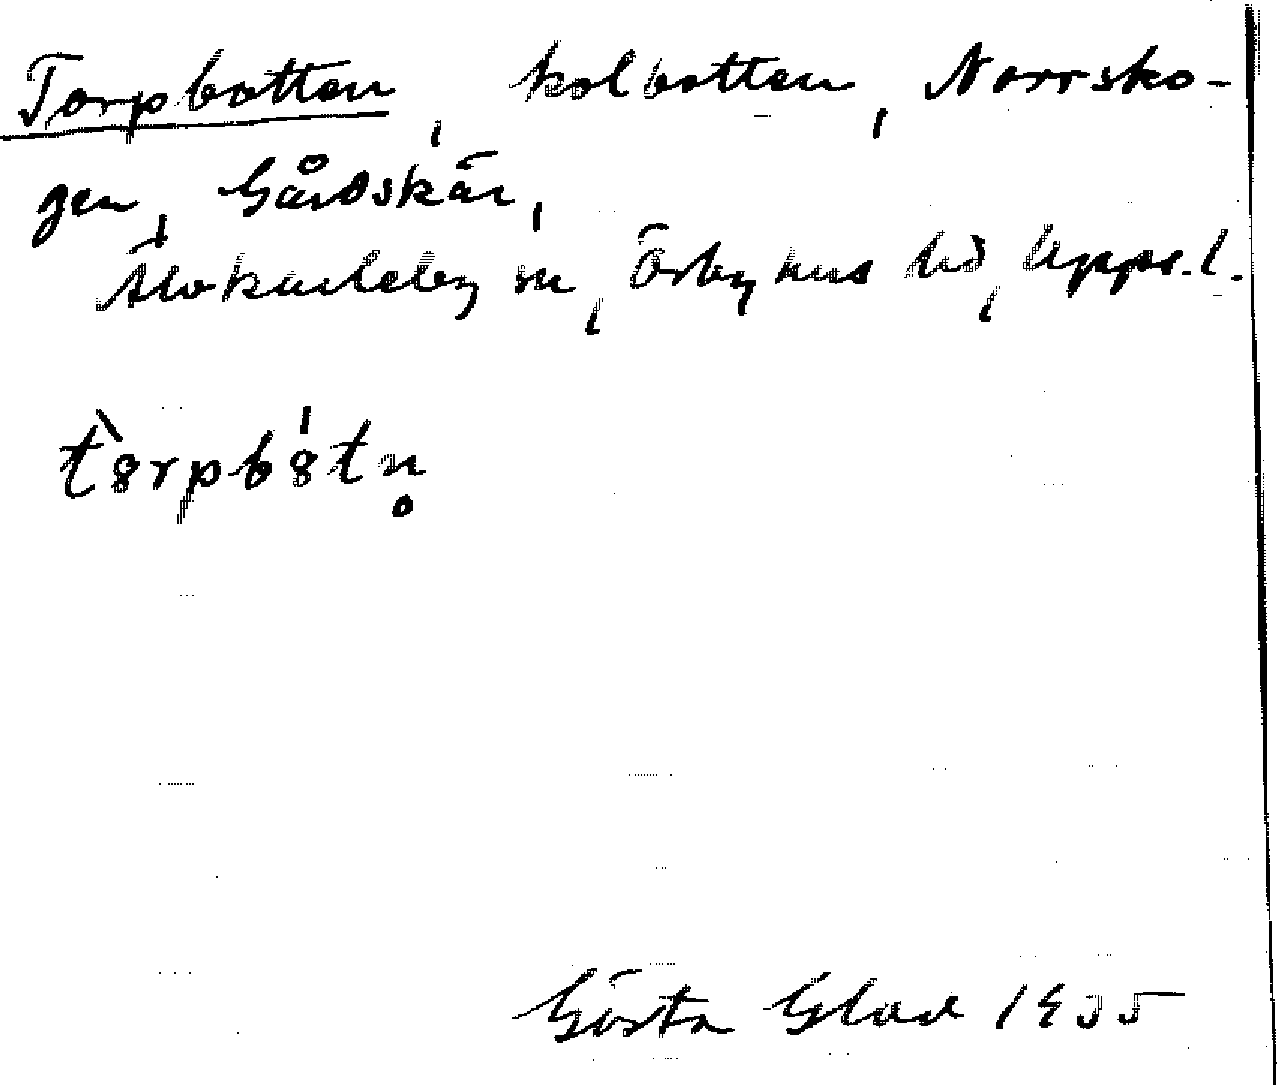 Torpbotten, kolbotten, Norrsko-
gen, Gårdskär,
Älvkarleby sn, Örbyhus hd, Upps. l.
tȍrpbótn̥
Gösta Glad 1935